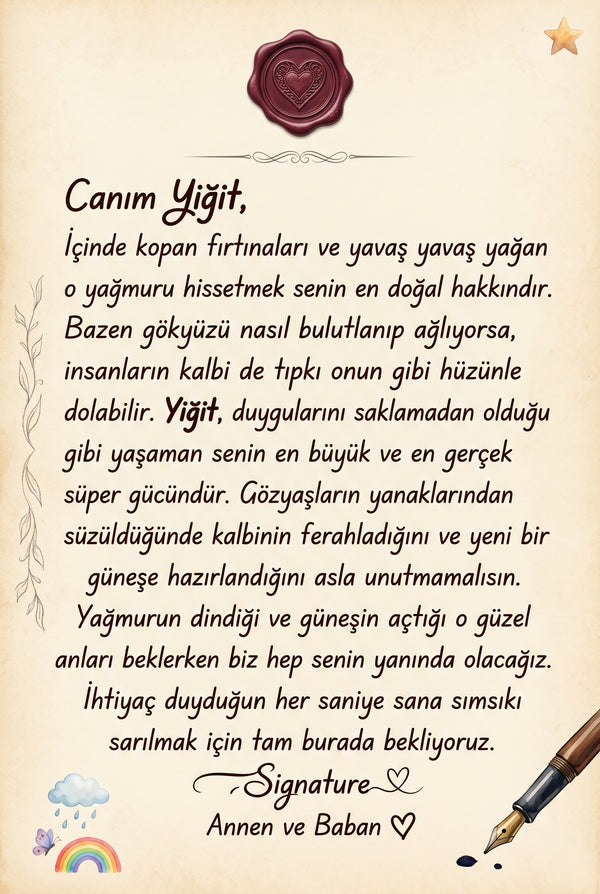 Canım Yiğit,
İçinde kopan fırtınaları ve yavaş yavaş yağan
o yağmuru hissetmek senin en doğal hakkındır.
Bazen gökyüzü nasıl bulutlanıp ağlıyorsa,
insanların kalbi de tıpkı onun gibi hüzünle
dolabilir. Yiğit, duygularını saklamadan olduğu
gibi yaşaman senin en büyük ve en gerçek
süper gücündür. Gözyaşların yanaklarından
süzüldüğünde kalbinin ferahladığını ve yeni bir
güneşe hazırlandığını asla unutmamalısın.
Yağmurun dindiği ve güneşin açtığı o güzel
anları beklerken biz hep senin yanında olacağız.
İhtiyaç duyduğun her saniye sana sımsıkı
sarılmak için tam burada bekliyoruz.
Signature
Annen ve Baban ♡